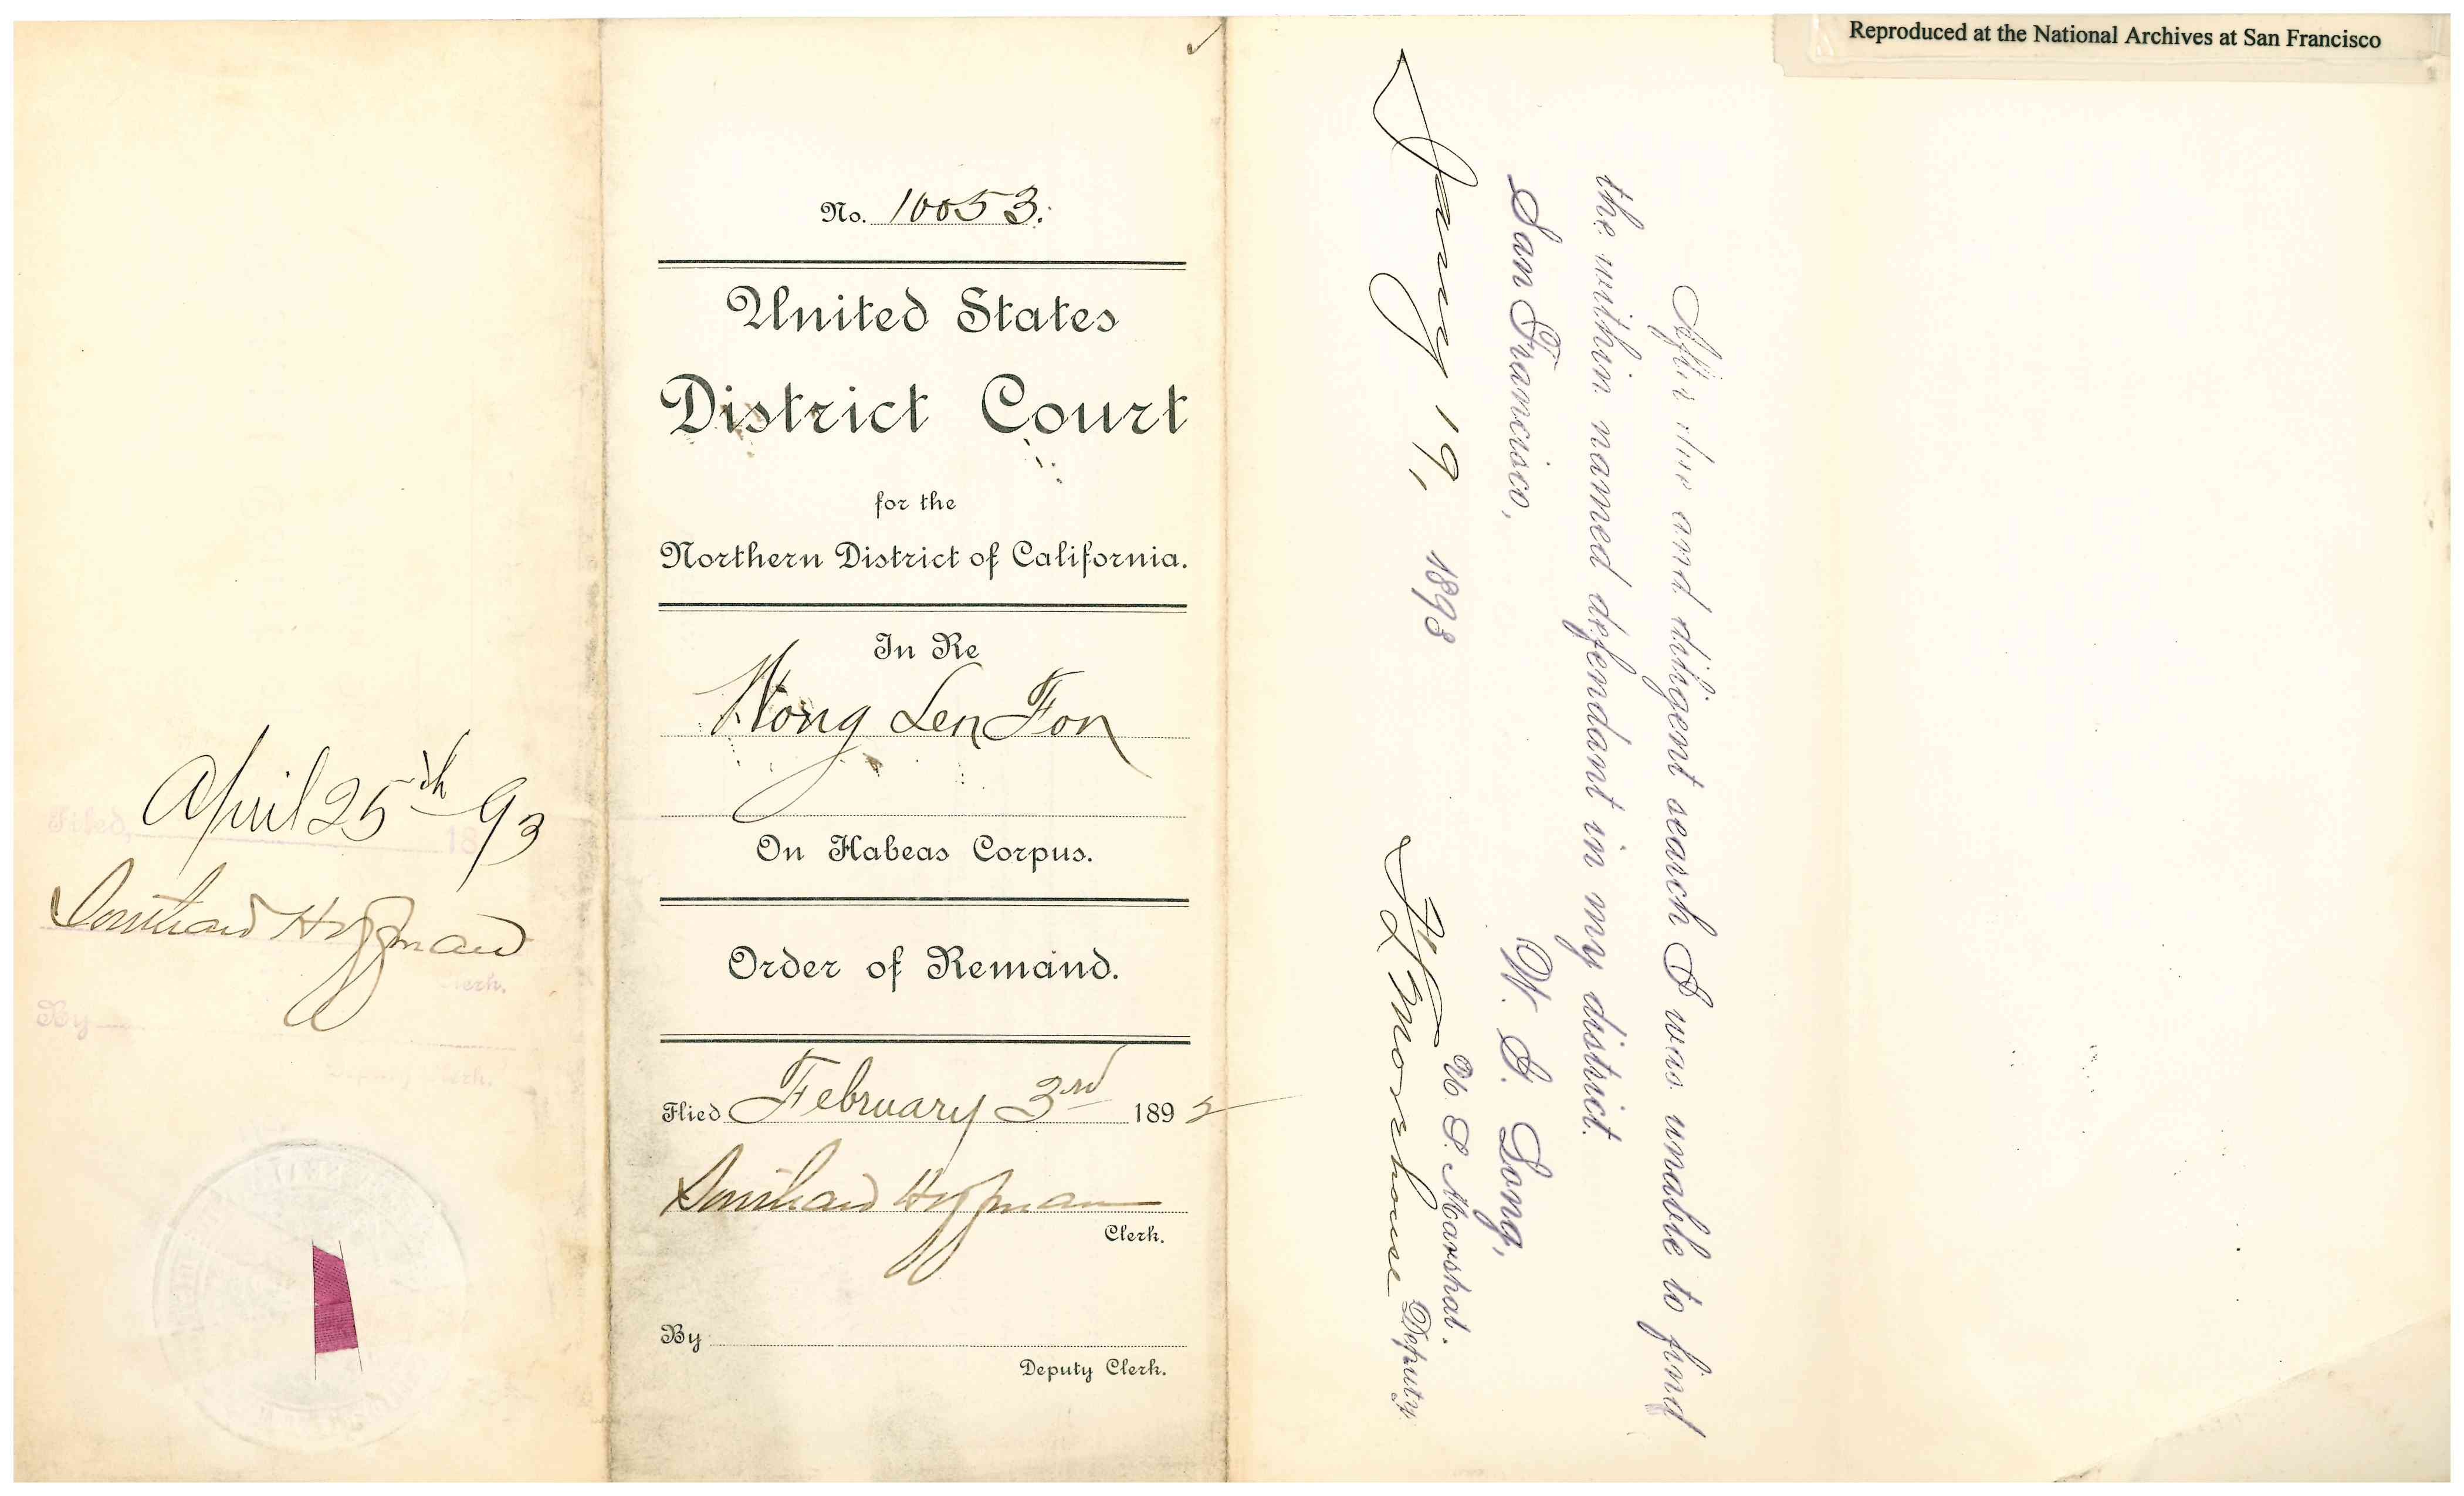 Reproduced at the National Archives at San Francisco
Filed, April 25th 1893
Southard Hoffman
Clerk.
By
Deputy Clerk.
No. 10053.
United States
District Court
for the
Northern District of California.
In Re
Wong Len Fon
On Habeas Corpus.
Order of Remand.
Filed February 3rd 1892
Southard Hoffman
Clerk.
By
Deputy Clerk.
After due and diligent search I was unable to find
the within named defendant in my district.
San Francisco, W. G. Long,
U. S. Marshal.
Jany 19, 1893
Morehouse Deputy